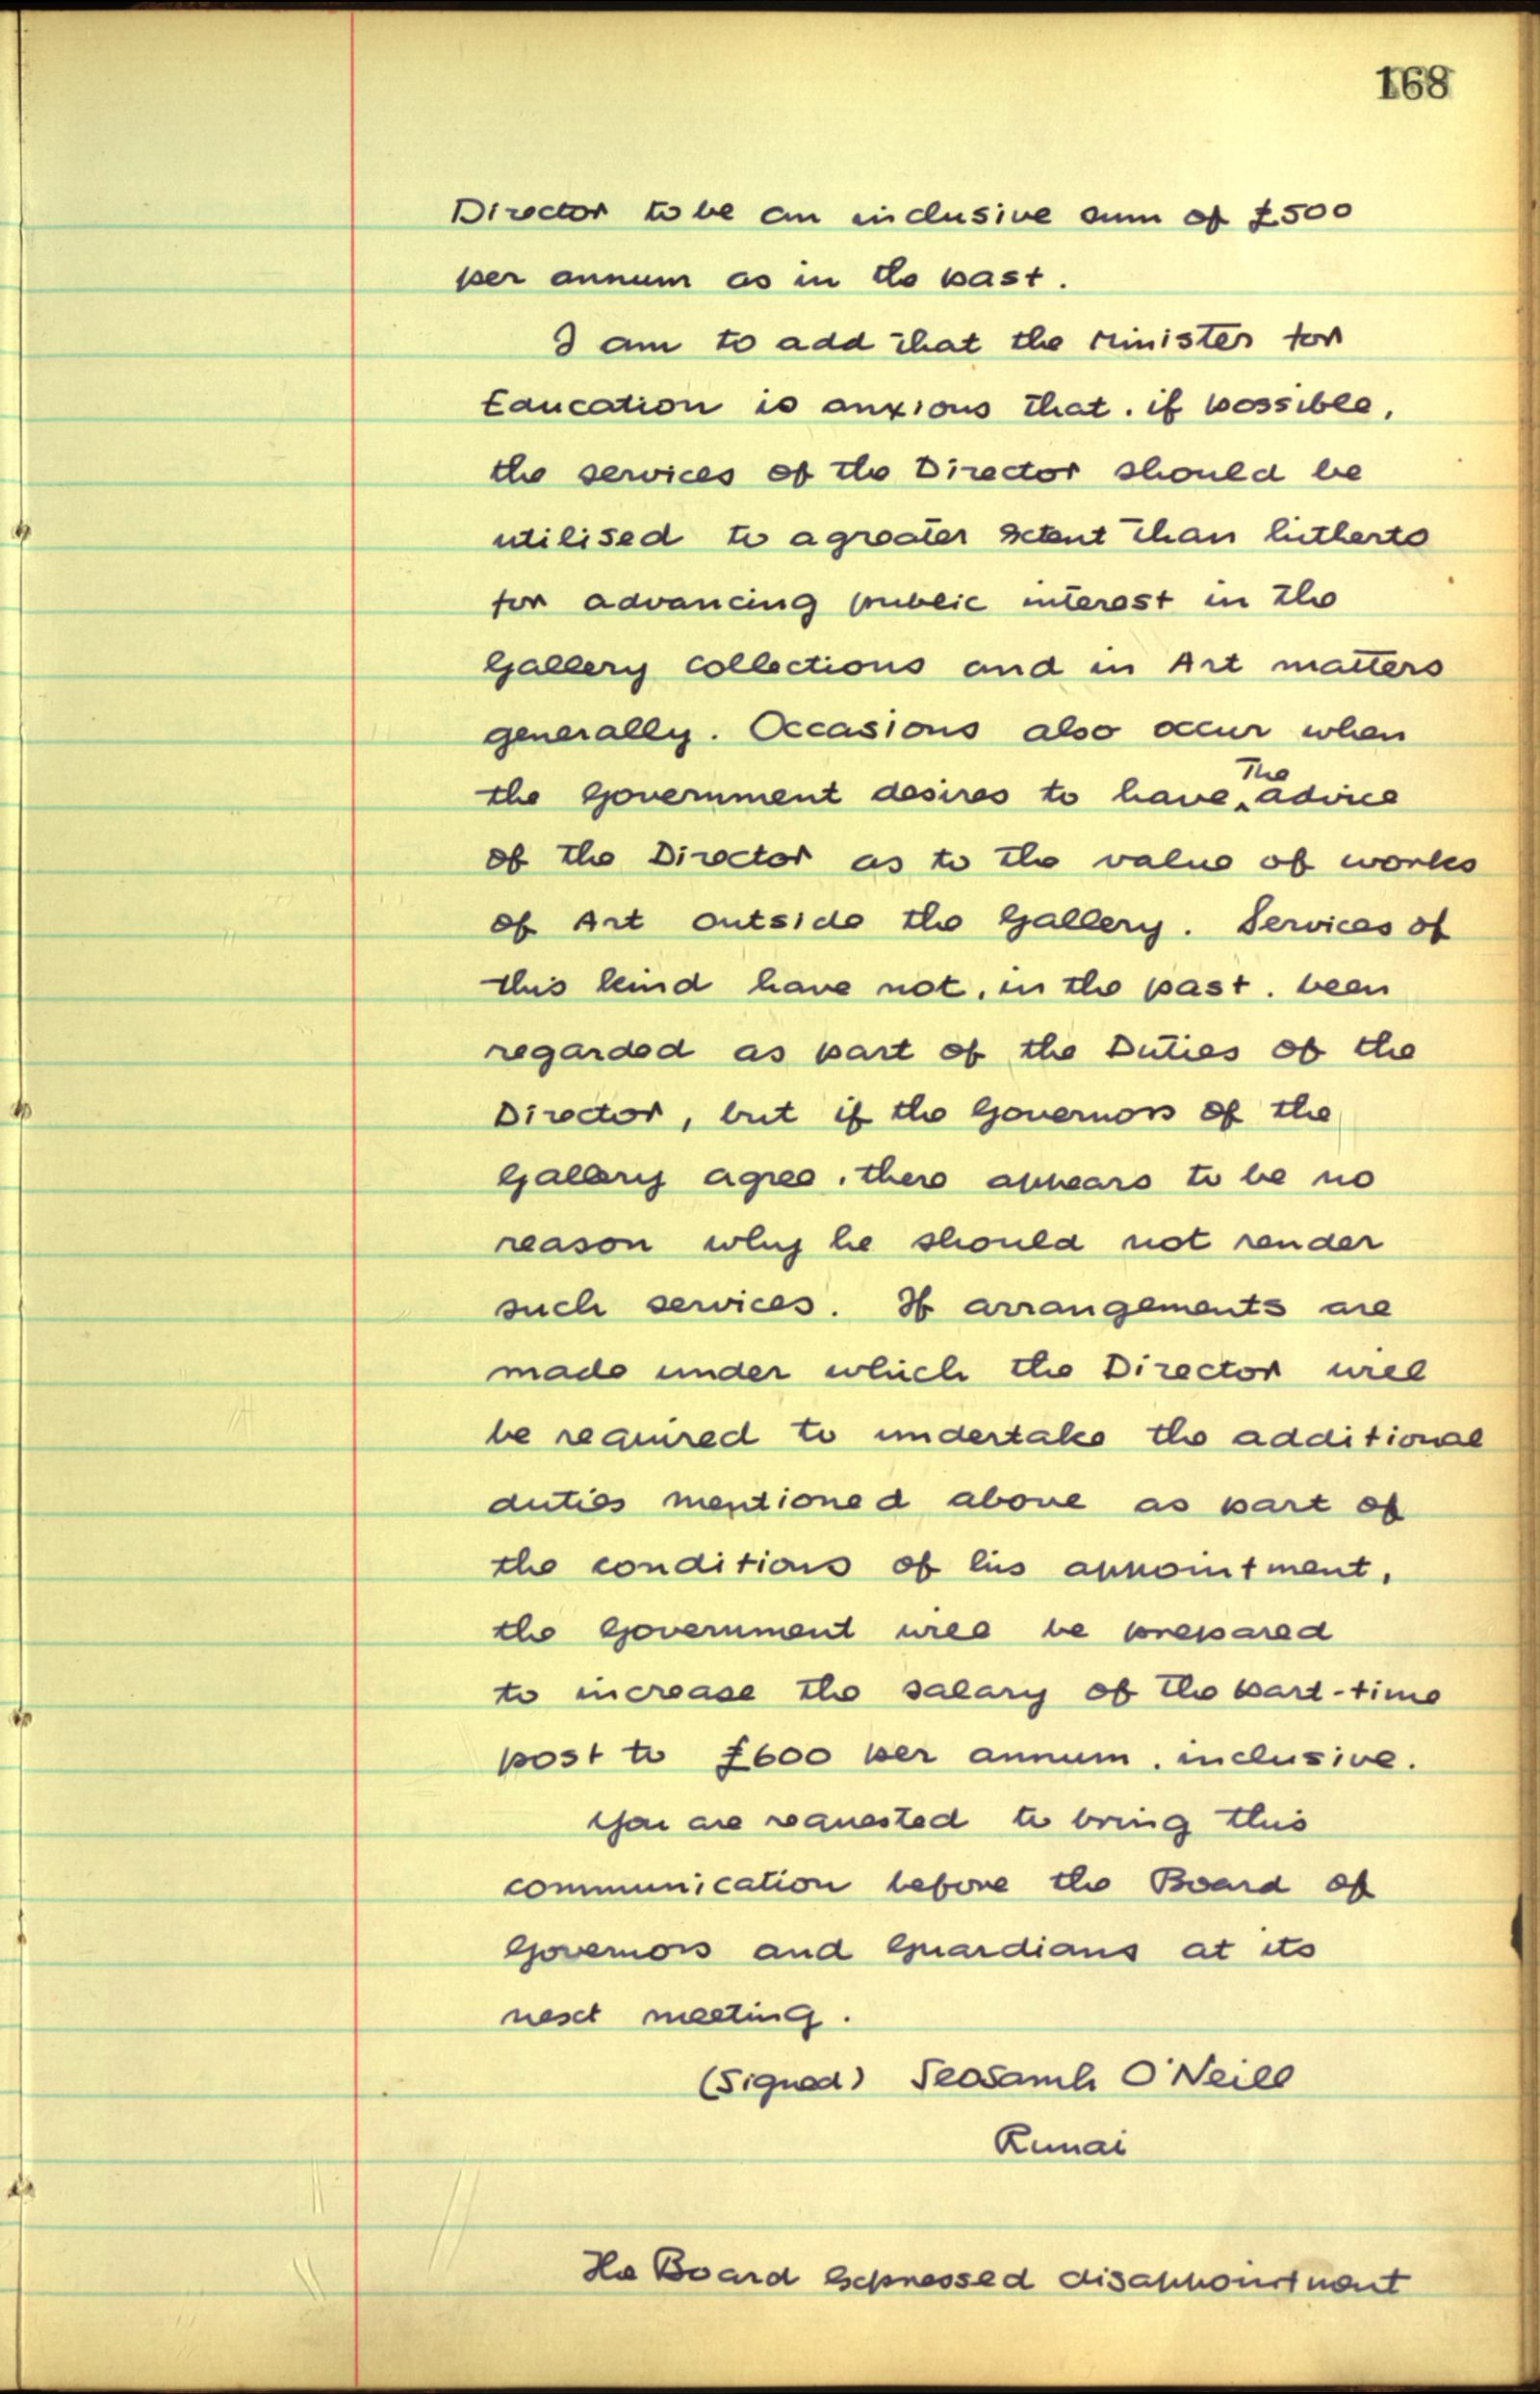 168
Director to be an inclusive sum of £500
per annum as in the past.
I am to add that the Minister for
Education is anxious that, if possible,
the services of the Director should be
utilised to a greater extent than hitherto
for advancing public interest in the
Gallery collections and in Art matters
generally. Occasions also occur when
the Government desires to have the advice
of the Director as to the value of works
of Art outside the Gallery. Services of
this kind have not, in the past, been
regarded as part of the Duties of the
Director, but if the Governors of the
Gallery agree, there appears to be no
reason why he should not render
such services. If arrangements are
made under which the Director will
be required to undertake the additional
duties mentioned above as part of
the conditions of his appointment,
the Government will be prepared
to increase the salary of the part-time
post to £600 per annum, inclusive.
You are requested to bring this
communication before the Board of
Governors and Guardians at its
next meeting.
(Signed) Seosamh O'Neill
Runai
The Board expressed disappointment